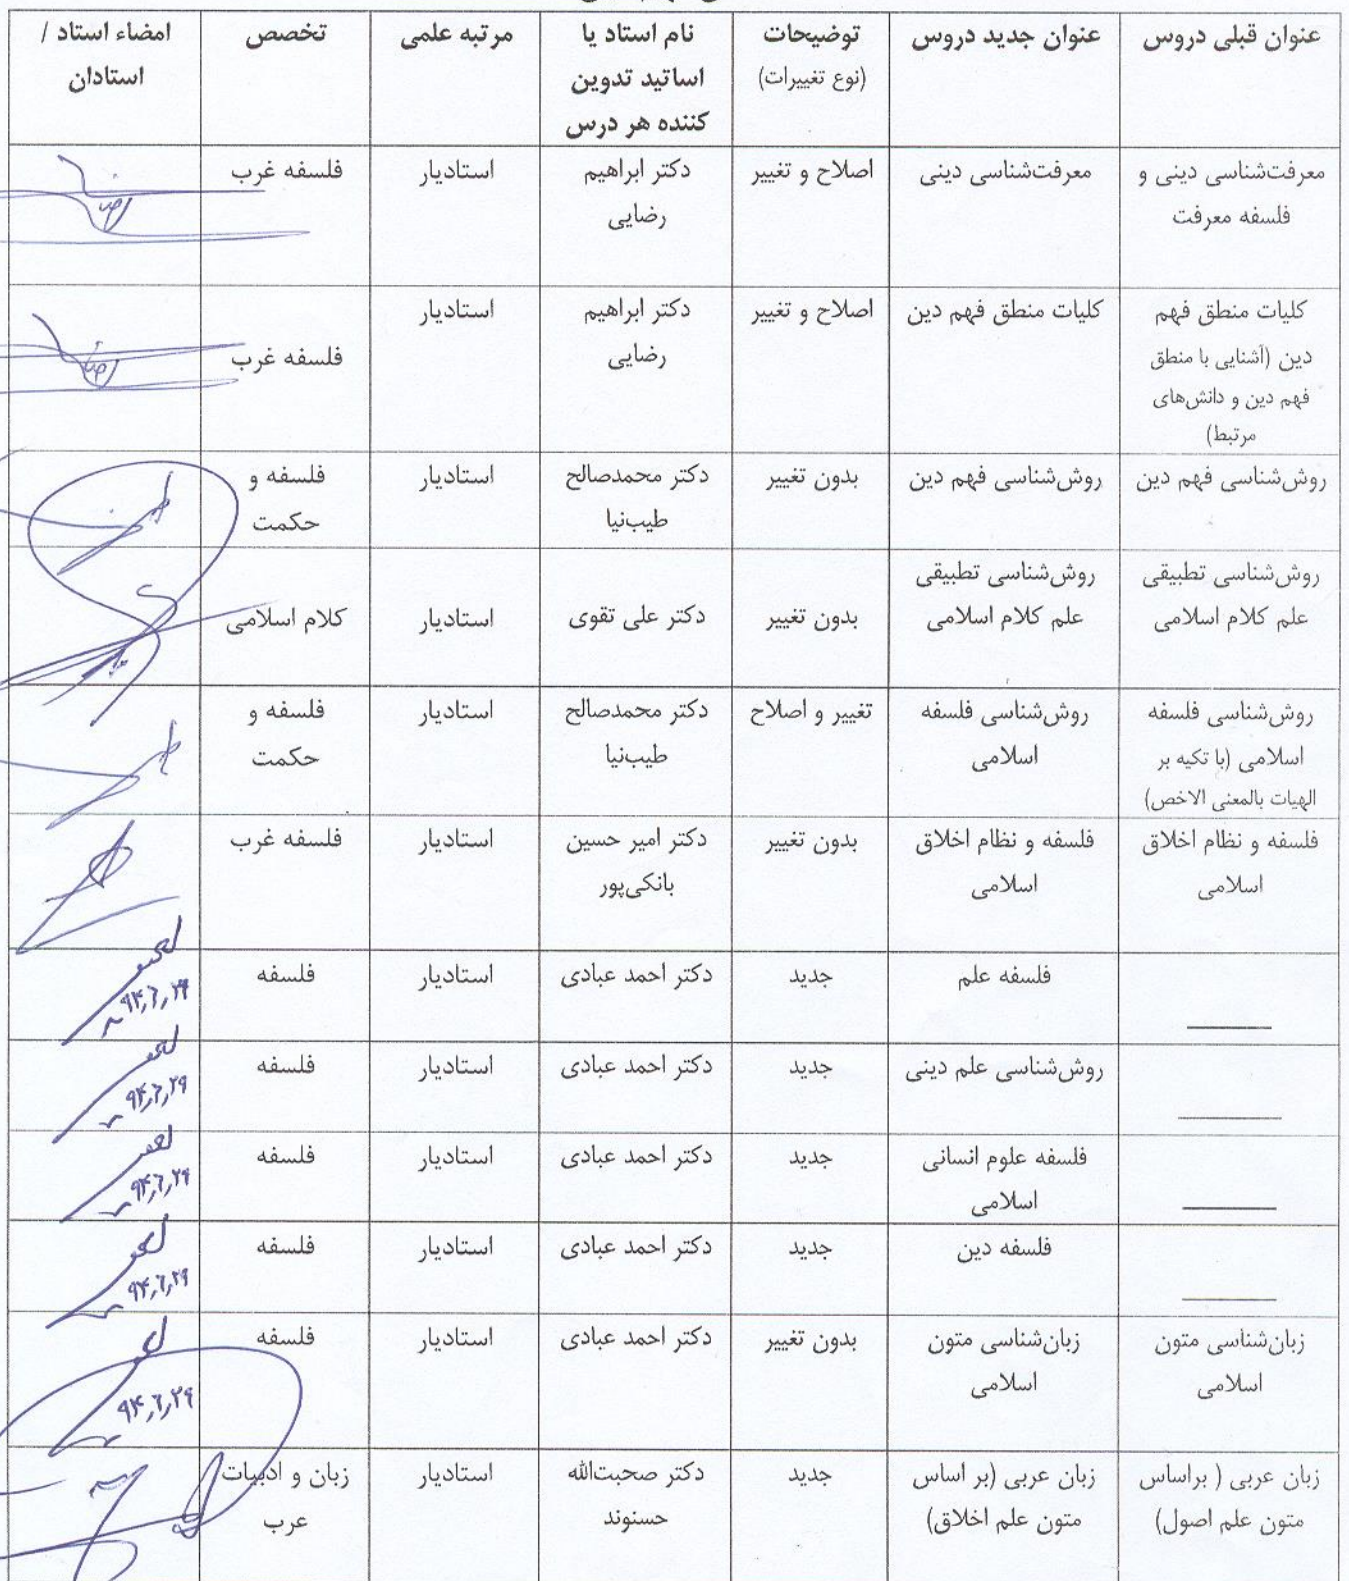 عنوان قبلی دروس
عنوان جدید دروس
توضیحات
(نوع تغییرات)
نام استاد یا
اساتید تدوین
کننده هر درس
مرتبه علمی
تخصص
امضاء استاد /
استادان
معرفت‌شناسی دینی و
فلسفه معرفت
معرفت‌شناسی دینی
اصلاح و تغییر
دکتر ابراهیم
رضایی
استادیار
فلسفه غرب
کلیات منطق فهم
دین (آشنایی با منطق
فهم دین و دانش‌های
مرتبط)
کلیات منطق فهم دین
اصلاح و تغییر
دکتر ابراهیم
رضایی
استادیار
فلسفه غرب
روش‌شناسی فهم دین
روش‌شناسی فهم دین
بدون تغییر
دکتر محمدصالح
طیب‌نیا
استادیار
فلسفه و
حکمت
روش‌شناسی تطبیقی
علم کلام اسلامی
روش‌شناسی تطبیقی
علم کلام اسلامی
بدون تغییر
دکتر علی تقوی
استادیار
کلام اسلامی
روش‌شناسی فلسفه
اسلامی (با تکیه بر
الهیات بالمعنی الاخص)
روش‌شناسی فلسفه
اسلامی
تغییر و اصلاح
دکتر محمدصالح
طیب‌نیا
استادیار
فلسفه و
حکمت
فلسفه و نظام اخلاق
اسلامی
فلسفه و نظام اخلاق
اسلامی
بدون تغییر
دکتر امیر حسین
بانکی‌پور
استادیار
فلسفه غرب
فلسفه علم
جدید
دکتر احمد عبادی
استادیار
فلسفه
۹۴٫۶٫۲۹
روش‌شناسی علم دینی
جدید
دکتر احمد عبادی
استادیار
فلسفه
۹۴٫۶٫۲۹
فلسفه علوم انسانی
اسلامی
جدید
دکتر احمد عبادی
استادیار
فلسفه
۹۴٫۶٫۲۹
فلسفه دین
جدید
دکتر احمد عبادی
استادیار
فلسفه
۹۴٫۶٫۲۹
زبان‌شناسی متون
اسلامی
زبان‌شناسی متون
اسلامی
بدون تغییر
دکتر احمد عبادی
استادیار
فلسفه
۹۴٫۶٫۲۹
زبان عربی ( براساس
متون علم اصول)
زبان عربی (بر اساس
متون علم اخلاق)
جدید
دکتر صحبت‌الله
حسنوند
استادیار
زبان و ادبیات
عرب